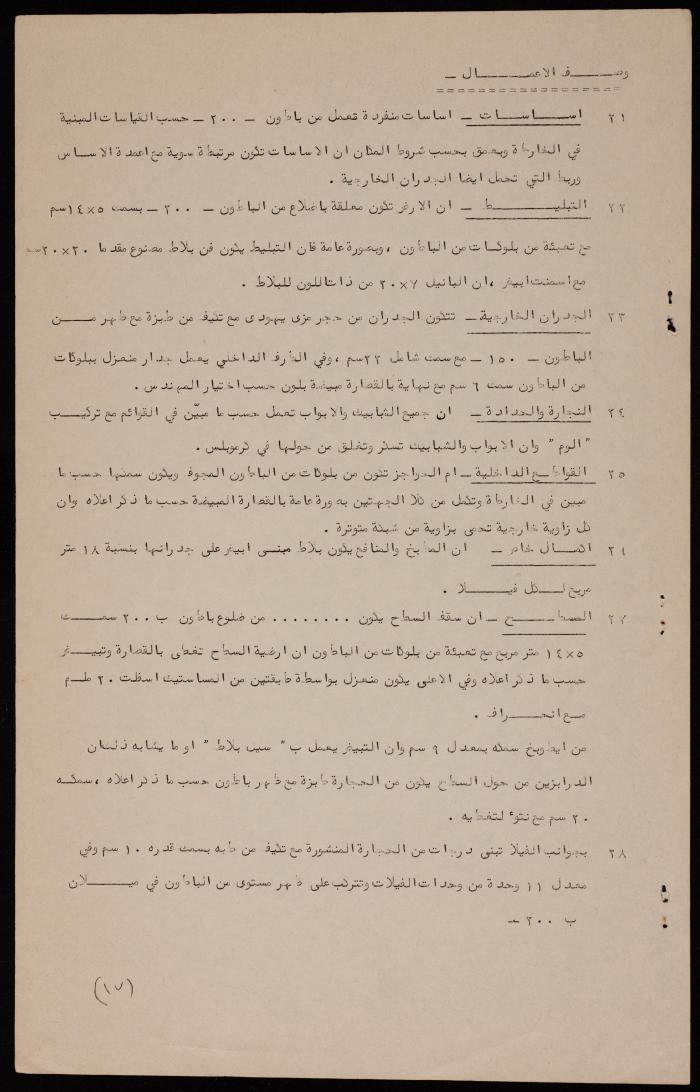 وصـف الاعمـال ـ
٢١ اسـاسـات ـ اساسات منفردة تعمل من باطون ـ ٢٠٠ ـ حسب القياسات المبنية
في الخارطة وبعمق بحسب شروط المكان ان الاساسات تكون مرتبطة سوية مع اعمدة الاساس
وربط التي تحمل ايضا الجدران الخارجية .
٢٢ التبليـط ـ ان الارض تكون معلقة باضلاع من الباطون ـ ٢٠٠ ـ بسمك ٥×١٤ سم
مع تعبئة من بلوكات من الباطون ، وبصورة عامة فان التبليط يكون من بلاط مصنوع مقدما ٢٠×٢٠سم
مع اسمنت ابيض ، ان البانيل ٧×٢٠ من ذات اللون للبلاط .
٢٣ الجدران الخارجية ـ تتكون الجدران من حجر مزى يهودى مع تكيف من طبزة مع ظهر مـن
الباطون ـ ١٥٠ ـ مع سمك شامل ٢٢سم ، وفي الطرف الداخلي يعمل جدار منعزل ببلوكات
من الباطون سمك ٦ سم مع نهاية بالقصارة مبيضة بلون حسب اختيار المهندس .
٢٤ النجارة والحدادة ـ ان جميع الشبابيك والابواب تعمل حسب ما مبيّن في القوائم مع تركيـب
" الوم " وان الابواب والشبابيك تسكر وتغلق من حولها في كرموبلس .
٢٥ القواطع الداخلية ـ ام الحواجز تكون من بلوكات من الباطون المجوف ويكون سمكها حسب ما
مبين في الخارطة وتكمل من كلا الجهتين بصورة عامة بالقصارة المبيضة حسب ما ذكر اعلاه وان
كل زاوية خارجية تحمى بزاوية من شبكة متوترة .
٢٦ اكمـال خاص ـ ان المطابخ والمنافع يكون بلاط مبنـى ابيض على جدرانها بنسبة ١٨ متر
مربع لـكل فيـلا .
٢٧ السطـح ـ ان سقف السطح يكون ........ من ضلوع باطون ب ٢٠٠ سمـك
٥×١٤ متر مربع مع تعبئة من بلوكات من الباطون ان ارضية السطح تغطى بالقصارة وتبييـض
حسب ما ذكر اعلاه وفي الاعلى يكون منعزل بواسطة طبقتين من المساستيك اسفلت ٢٠ ملـم
مـع انحـراف .
من ايطوبخ سمكه بمعدل ٩ سم وان التبييض يعمل ب " سيب بلاط " او ما يشابه ذلك ان
الدرابزين من حول السطح يكون من الحجارة طبزة مع ظهر باطون حسب ما ذكر اعلاه ، سمكـه
٢٠ سم مع نتوء لتغطيه .
٢٨ بجوانب الفيلا تبنى درجات من الحجارة المنشورة مع تكيف من طبه بسمك قدره ١٠ سم وفي
معدل ١١ وحدة من وحدات الفيلات وتتركب على ظهر مستوى من الباطون في ميـلان
ب ٢٠٠ ـ
(١٧)